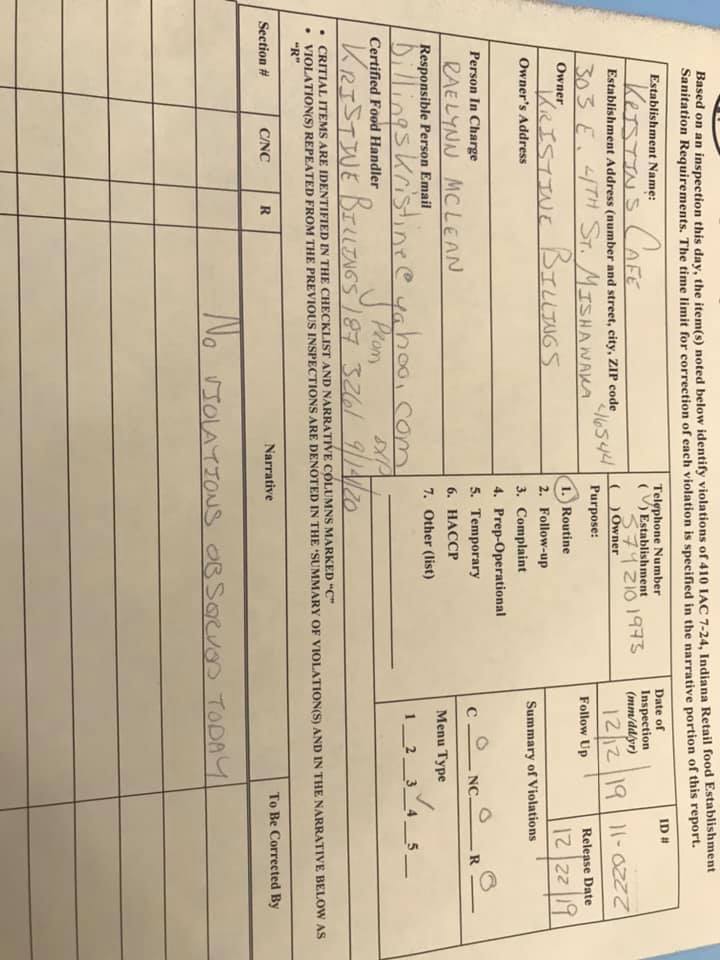 Based on an inspection this day, the item(s) noted below identify violations of 410 IAC 7-24, Indiana Retail food Establishment
Sanitation Requirements. The time limit for correction of each violation is specified in the narrative portion of this report.
Establishment Name:
KRISTIN'S CAFE
Telephone Number
(√) Establishment
( ) Owner
574 210 1973
Date of
Inspection
(mm/dd/yr)
12/12/19
ID #
11-0222
Establishment Address (number and street, city, ZIP code
303 E. 4TH ST. MISHAWAKA 46544
Purpose:
1. Routine
2. Follow-up
3. Complaint
4. Prep-Operational
5. Temporary
6. HACCP
7. Other (list)
Follow Up
Release Date
12/22/19
Owner
KRISTINE BILLINGS
Owner's Address
Summary of Violations
C 0 NC 0 R 0
Person In Charge
RAELYNN MCLEAN
Menu Type
1 2 3 √ 4 5
Responsible Person Email
billingskristine@yahoo.com
Certified Food Handler
KRISTINE BILLINGS 187 3261 9/14/20
Prom exp
• CRITIAL ITEMS ARE IDENTIFIED IN THE CHECKLIST AND NARRATIVE COLUMNS MARKED "C"
• VIOLATION(S) REPEATED FROM THE PREVIOUS INSPECTIONS ARE DENOTED IN THE 'SUMMARY OF VIOLATION(S) AND IN THE NARRATIVE BELOW AS
"R"
Section # C/NC R Narrative To Be Corrected By
No VIOLATIONS OBSERVED TODAY